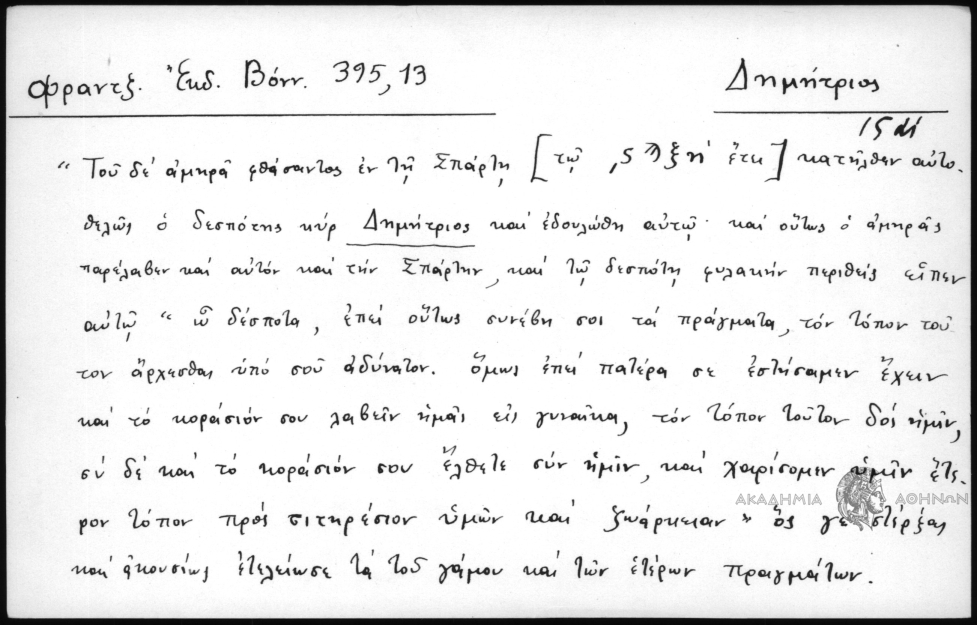 Φραντζ. Ἔκδ. Βόνν. 395,13
Δημήτριος
15 αἰ
“ Τοῦ δέ ἀμηρᾶ φθάσαντος ἐν τῇ Σπάρτῃ [τῷ ͵ϛϠξη' ἔτει] κατῆλθεν αὐτο-
θελῶς ὁ δεσπότης κύρ Δημήτριος καί ἐδουλώθη αὐτῷ· καί οὕτως ὁ ἀμηρᾶς
παρέλαβεν καί αὐτόν καί τήν Σπάρτην, καί τῷ δεσπότῃ φυλακήν περιθείς εἶπεν
αὐτῷ “ ὦ δέσποτα, ἐπεί οὕτως συνέβη σοι τά πράγματα, τόν τόπον τοῦ
τον ἄρχεσθαι ὑπό σοῦ ἀδύνατον. ὅμως ἐπεί πατέρα σε ἐστήσαμεν ἔχειν
καί τό κοράσιόν σου λαβεῖν ἡμᾶς εἰς γυναῖκα, τόν τόπον τοῦτον δός ἡμῖν,
σύ δέ καί τό κοράσιόν σου ἔλθετε σύν ἡμῖν, καί χαρίσομεν ὑμῖν ἕτε-
ρον τόπον πρός σιτηρέσιον ὑμῶν καί ζωάρκειαν” ὅς γε στέρξας
καί ἀκουσίως ἐτελείωσε τά τοῦ γάμου καί τῶν ἑτέρων πραγμάτων.
ΑΚΑΔΗΜΙΑ ΑΘΗΝΩΝ